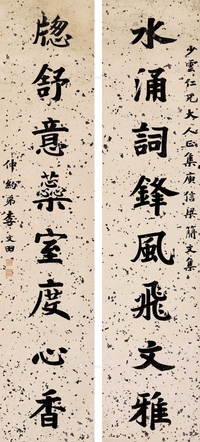 少雲仁兄大人正集庾信梁簡文集
水涌詞鋒風飛文雅
牕舒意蘂室度心香
仲約弟李文田